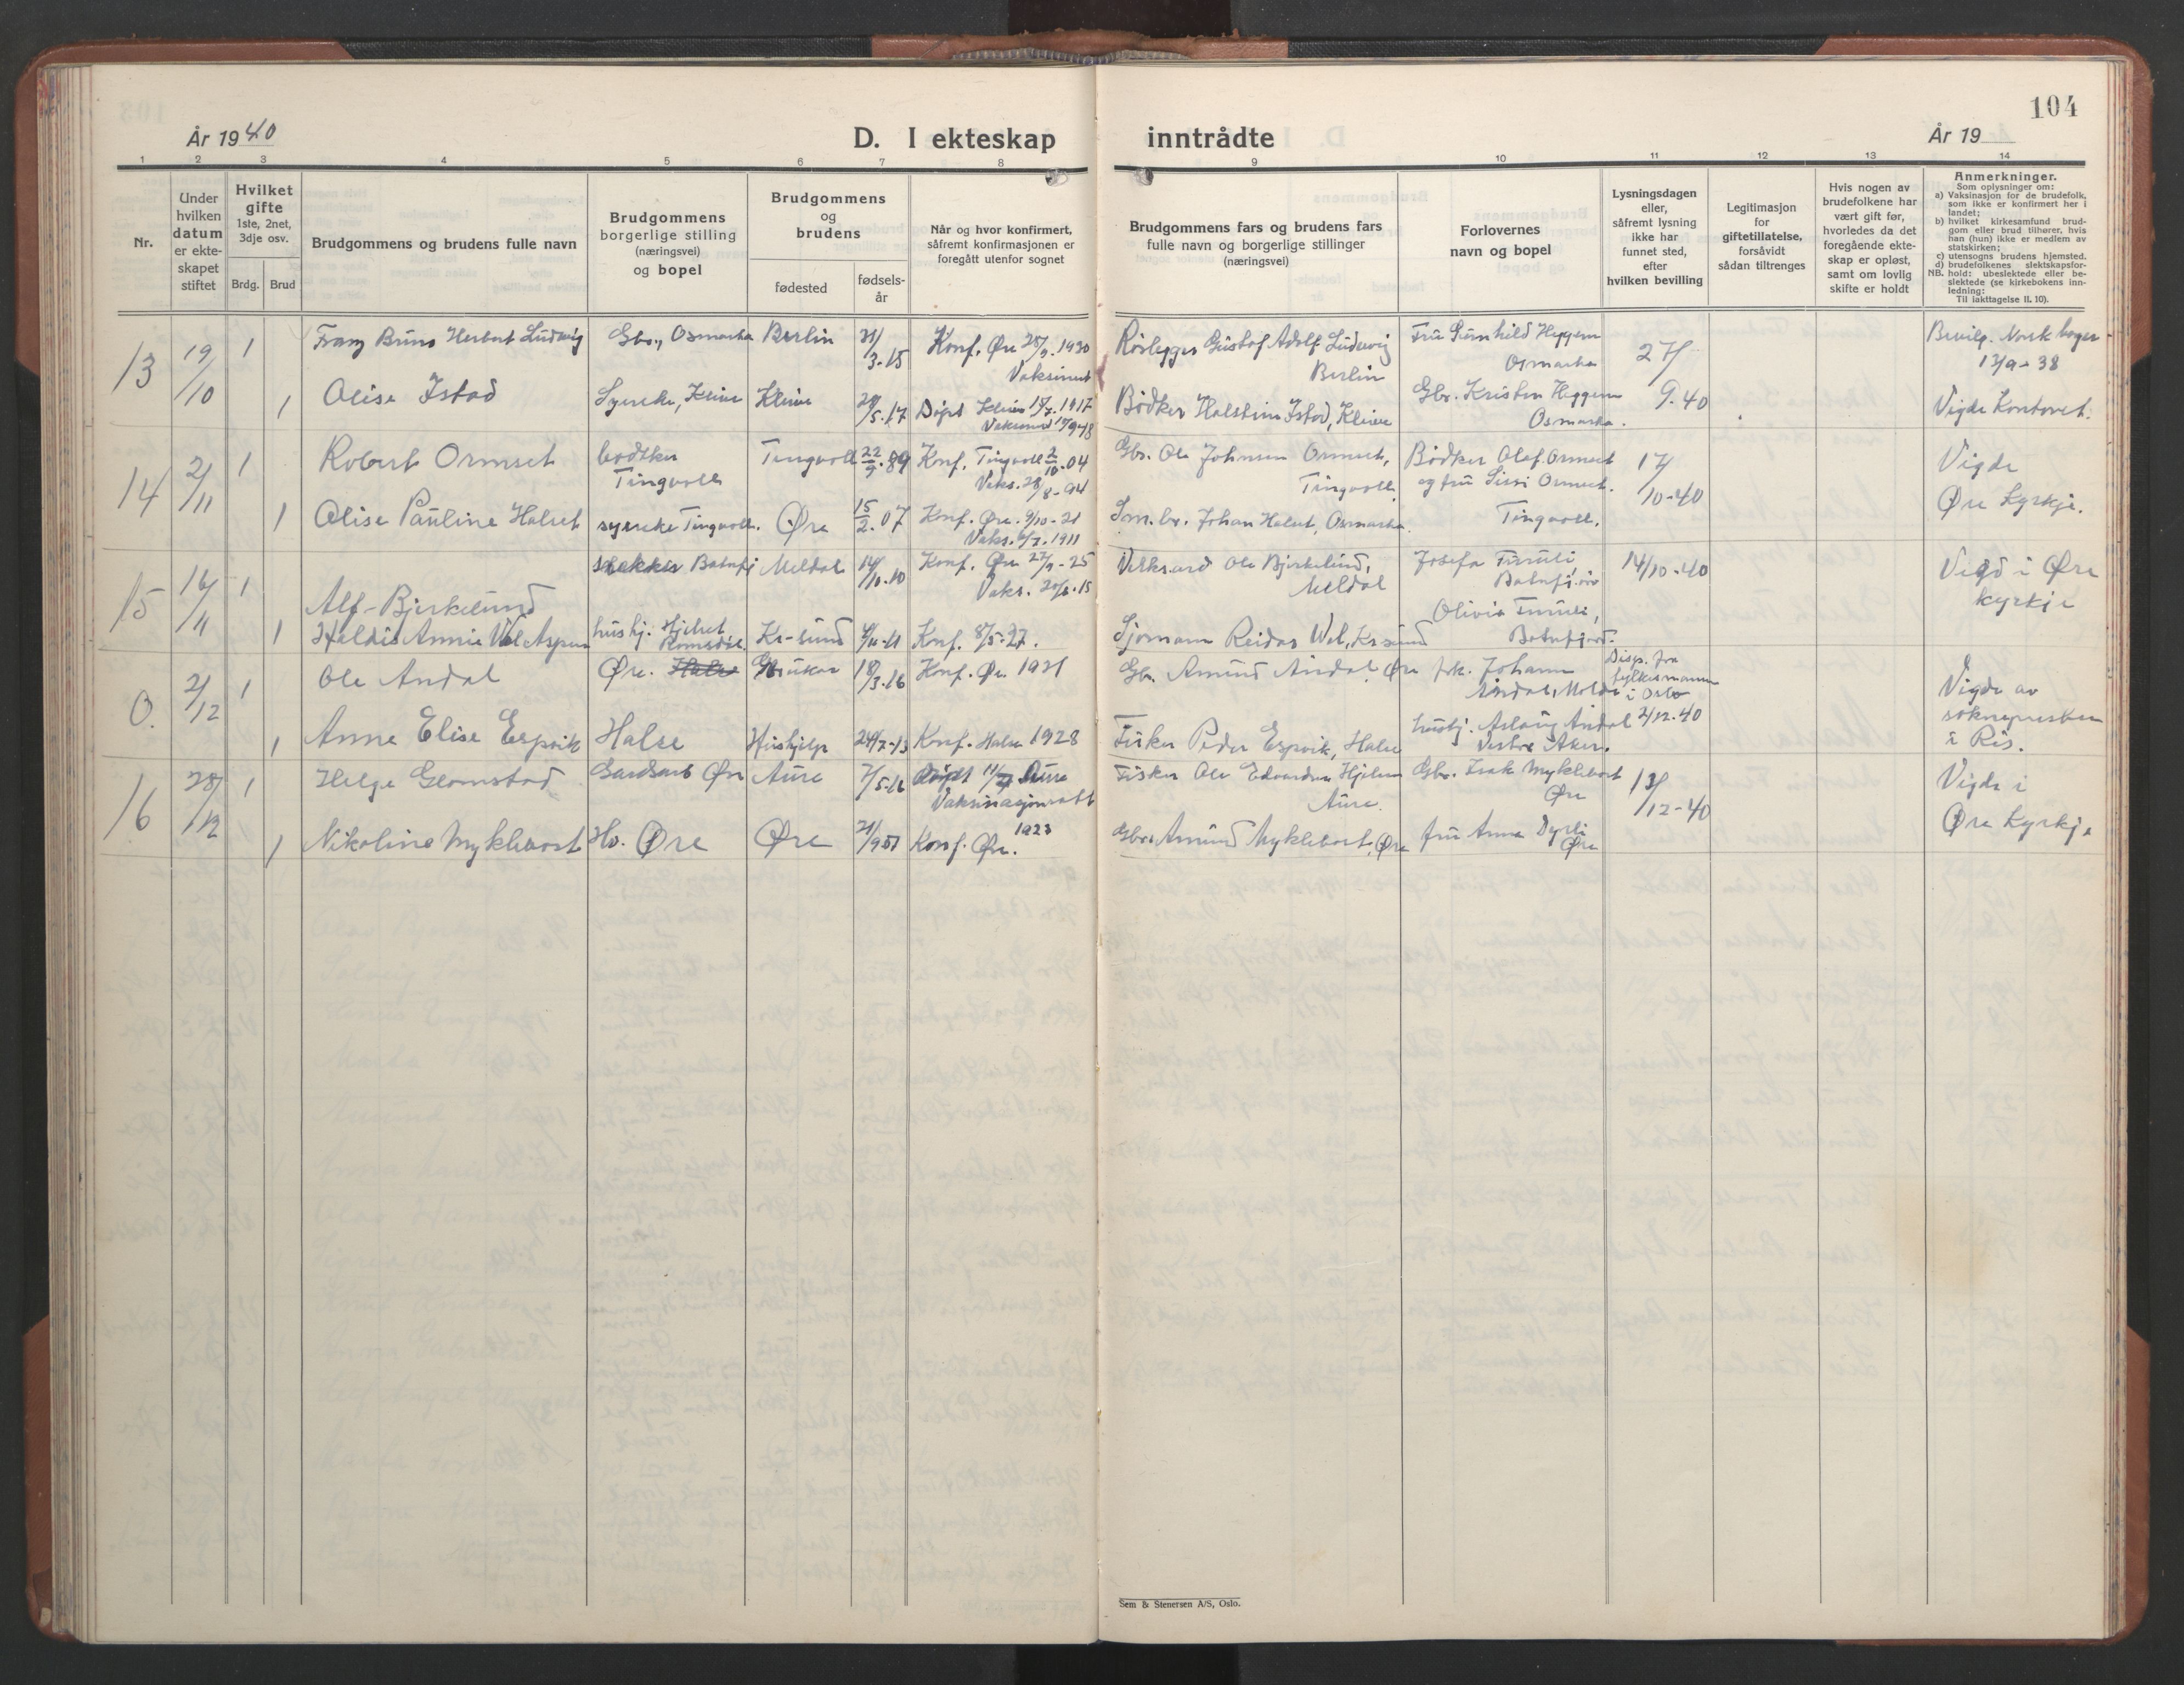 104
År 1940
D. I ekteskap inntrådte
År 19
1 2 3 4 5 6 7 8 9 10 11 12 13 14
Nr.
Under hvilken datum er ekte-skapet stiftet
Hvilket gifte
1ste, 2net, 3dje osv.
Brdg. Brud
Brudgommens og brudens fulle navn
Brudgommens borgerlige stilling (næringsvei) og bopel
Brudgommens og brudens
fødested
fødsels-år
Når og hvor konfirmert, såfremt konfirmasjonen er foregått utenfor sognet
Brudgommens fars og brudens fars fulle navn og borgerlige stillinger (næringsvei)
Forlovernes navn og bopel
Lysningsdagen eller, såfremt lysning ikke har funnet sted, efter hvilken bevilling
Legitimasjon for giftetillatelse, forsåvidt sådan tiltrenges
Hvis nogen av brudefolkene har vært gift før, hvorledes da det foregående ekte-skap er opløst, samt om lovlig skifte er holdt
Anmerkninger.
Som oplysninger om:
a) Vaksinasjon for de brudefolk, som ikke er konfirmert her i landet;
b) hvilket kirkesamfund brud-gom eller brud tilhører, hvis han (hun) ikke er medlem av statskirken;
c) utensogns brudens hjemsted.
d) brudefolkenes slektskapsfor-hold: ubeslektede eller be-slektede (se kirkebokens inn-ledning:
NB.
Til iakttagelse II. 10).
13 19/10 1 Franz Bruno Herbert Ludwig Gbr., Osmarka Berlin 31/3-15 Konf. Øre 28/9. 1930 Vaksinert Rørlegger Gustaf Adolf Ludwig Berlin Fru Gunhild Heggem Osmarka 27/9.40 12/9-38
1 Olise Istad Syerske, Kleive Kleive 5.17 Døpt Kleive 1917 Bødker Halstein Istad, Kleive Gbr. Kristen Heggem Osmarka. Vigde Kontoret.
14 2/11 1 Robert Ormset bødker Tingvoll Tingvoll 22/9.89 Konf. Tingvoll 2/10-04 Vaks. 28/8-94 Gbr. Ole Johnsen Ormset, Tingvoll Bødker Olaf Ormset og fru Sissi Ormset. Tingvoll. 17/10-40 Vigde Øre Kyrkje.
1 Olise Pauline Halset syerske Tingvoll. Øre 15/2.07 Konf. Øre. 9/10-21 Vaks. 1911 Sm.br. Johan Halset, Osmarka.
15 16/11 1 Alf Bjerkelund Batnfj Meldal 14/10.10 Konf. Øre 27/9-25 Vaks. 15 Ole Bjerkelund, Meldal Josefa Furuli, Batnfjord 14/10-40 Vigd i Øre kyrkje
1 Haldis Annie Wol Aspen hushj. Hjelset Romsdal. Kr-sund 11 Konf. 8/5-27. Sjømann Reidar Wol, Krsund Olivia Furuli, Batnfjord.
0. 2/12 1 Ole Andal Øre. 18/3.16 Konf. Øre 1931 Gbr. Amund Andal, Øre frk. Johanna Andal, Molde Disp. fra fylkesmannen i Oslo 2/12-40 Vigde av sokneprestem i Ris.
1 Anne Elise Espvik Halse Hushjelp 13 Konf. Halse 1928 Fisker Peder Espvik, Halse hushj. Aslaug Andal Vestre Aker.
16 28/12 1 Helge Glomstad Gardsarb Øre Aure 7/5-16 Døpt Aure Vaksinasjonsatt Fisker Ole Edvardsen Hjelen Aure. Gbr. Isak Myklebost Øre 13/12-40 Vigde i Øre Kyrkje
1 Nikoline Myklebost Hv. Øre Øre 21/9 Konf. Øre. 1923 Gbr. Amund Myklebost, Øre fru Anna Dyrli Øre
Sem & Stenersen A/S, Oslo.